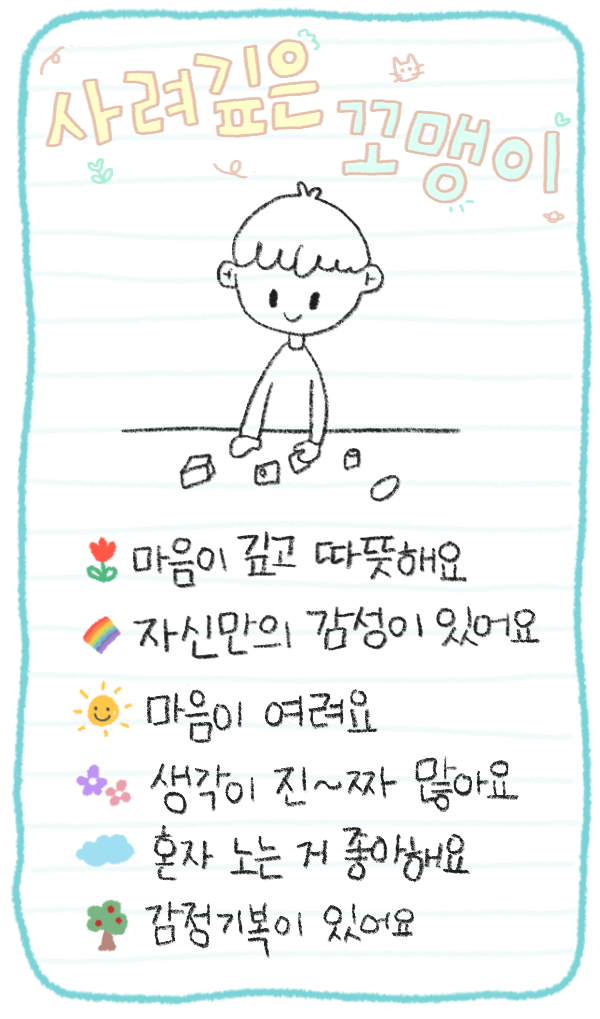 사려깊은
꼬맹이
마음이 깊고 따뜻해요
자신만의 감성이 있어요
마음이 여려요
생각이 진~짜 많아요
혼자 노는 거 좋아해요
감정기복이 있어요